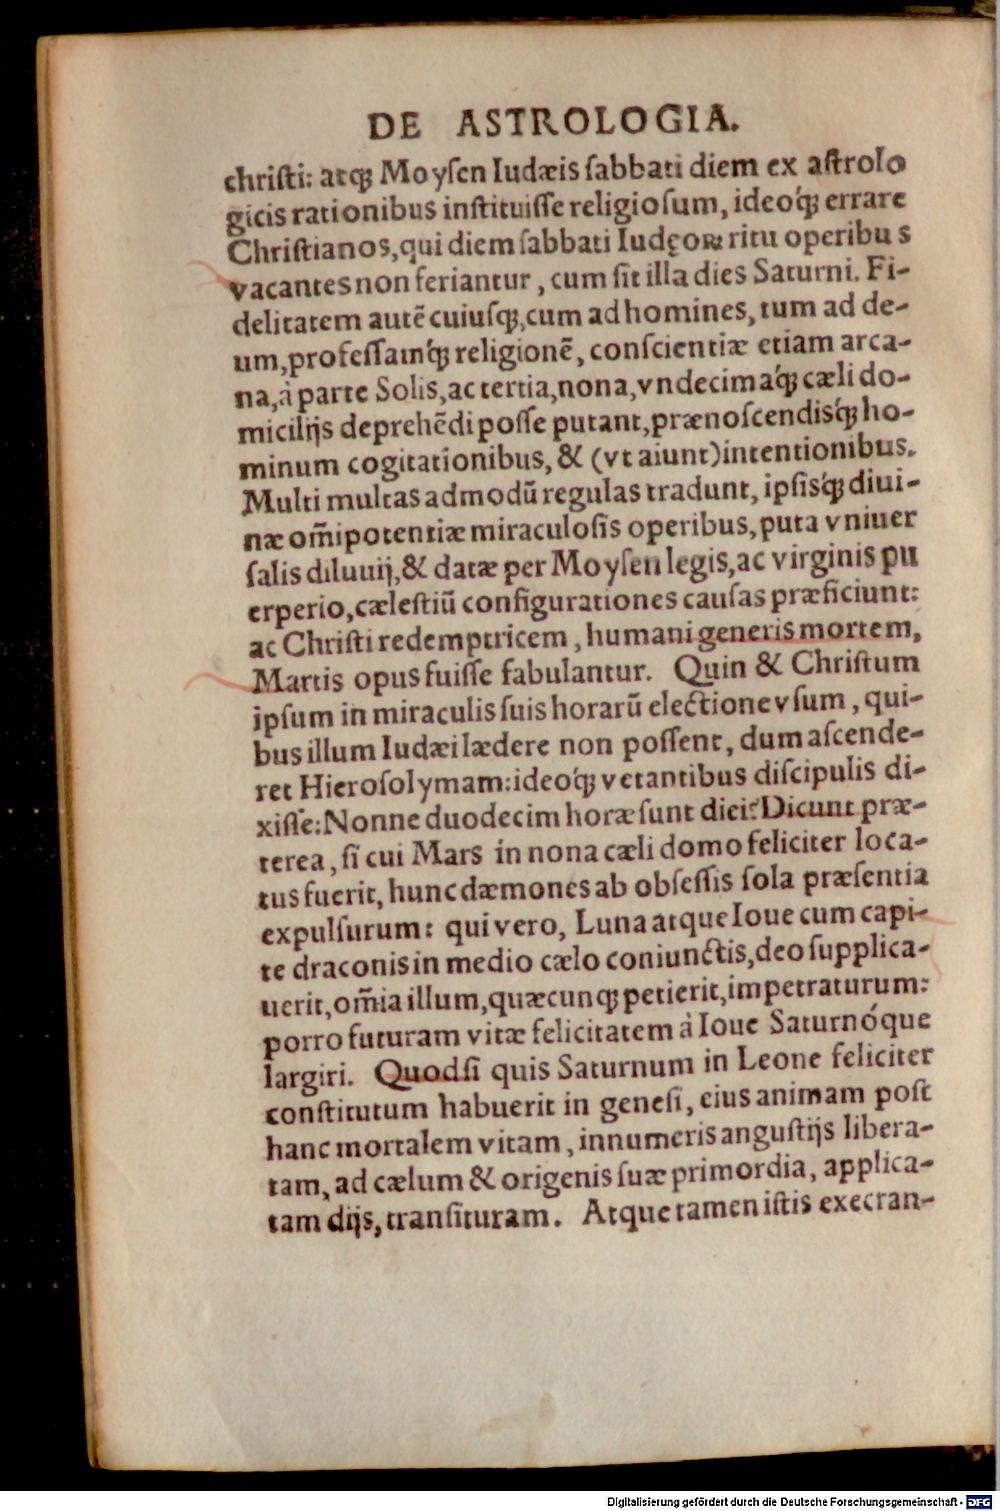 DE ASTROLOGIA.
christi: atq́ꝫ Moysen Iudæis ſabbati diem ex aſtrolo
gicis rationibus inſtituiſſe religioſum, ideoq́ꝫ errare
Chriſtianos, qui diem ſabbati Iudęoꝝ ritu operibus
vacantes non feriantur, cum ſit illa dies Saturni. Fi-
delitatem autē cuiuſqꝫ, cum ad homines, tum ad de-
um, profeſſamq́ꝫ religionē, conſcientiæ etiam arca-
na, à parte Solis, ac tertia, nona, vndecimaq́ꝫ cæli do-
micilijs deprehēdi poſſe putant, prænoſcendisq́ꝫ ho-
minum cogitationibus, & (vt aiunt) intentionibus.
Multi multas admodū regulas tradunt, ipſisq́ꝫ diui-
næ om̄ipotentiæ miraculoſis operibus, puta vniuer
ſalis diluuij, & datæ per Moyſen legis, ac virginis pu
erperio, cæleſtiū configurationes cauſas præficiunt:
ac Chriſti redemptricem, humani generis mortem,
Martis opus fuiſſe fabulantur. Quin & Chriſtum
ipſum in miraculis ſuis horarū electione vſum, qui-
bus illum Iudæi lædere non poſſent, dum aſcende-
ret Hieroſolymam: ideoq́ꝫ vetantibus diſcipulis di-
xiſſe: Nonne duodecim horæ ſunt diei? Dicunt præ-
terea, ſi cui Mars in nona cæli domo feliciter loca-
tus fuerit, hunc dæmones ab obſeſſis ſola præſentia
expulſurum: qui vero, Luna atque Ioue cum capi-
te draconis in medio cælo coniunctis, deo ſupplica-
uerit, om̄ia illum, quæcunqꝫ petierit, impetraturum:
porro futuram vitæ felicitatem à Ioue Saturnóque
largiri. Quod ſi quis Saturnum in Leone feliciter
conſtitutum habuerit in geneſi, eius animam poſt
hanc mortalem vitam, innumeris anguſtijs libera-
tam, ad cælum & origenis ſuæ primordia, applica-
tam dijs, tranſituram. Atque tamen iſtis execran-
Digitalisierung gefördert durch die Deutsche Forschungsgemeinschaft - DFG